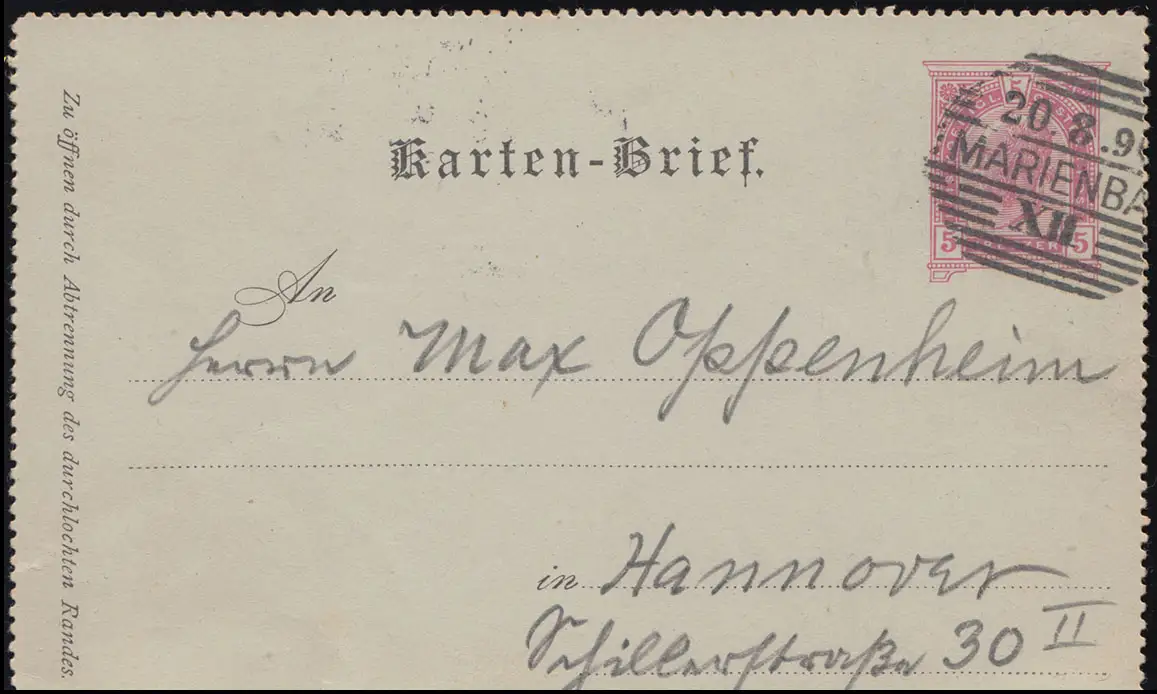 Karten-Brief.
20.8.9
MARIENBA
XII
5 5
An
Herrn Max Oppenheim
in Hannover
Schillerstraße 30 II
Zu öffnen durch Abtrennung des durchlochten Randes.